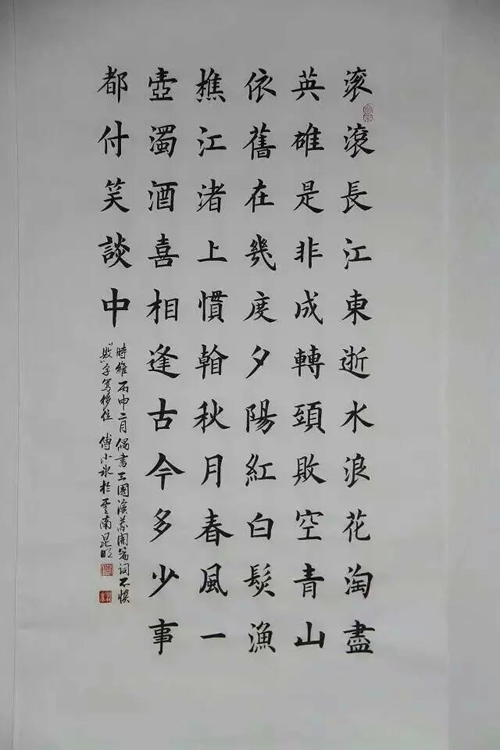 滚滚長江東逝水浪花淘盡
英雄是非成轉頭敗空青山
依舊在幾度夕陽紅白髮漁
樵江渚上慣翰秋月春風一
壺濁酒喜相逢古今多少事
都付笑談中
時維丙申二月偶書三國演義開篇词不慎
"敗"字寫移位 傅小冰於雲南昆明